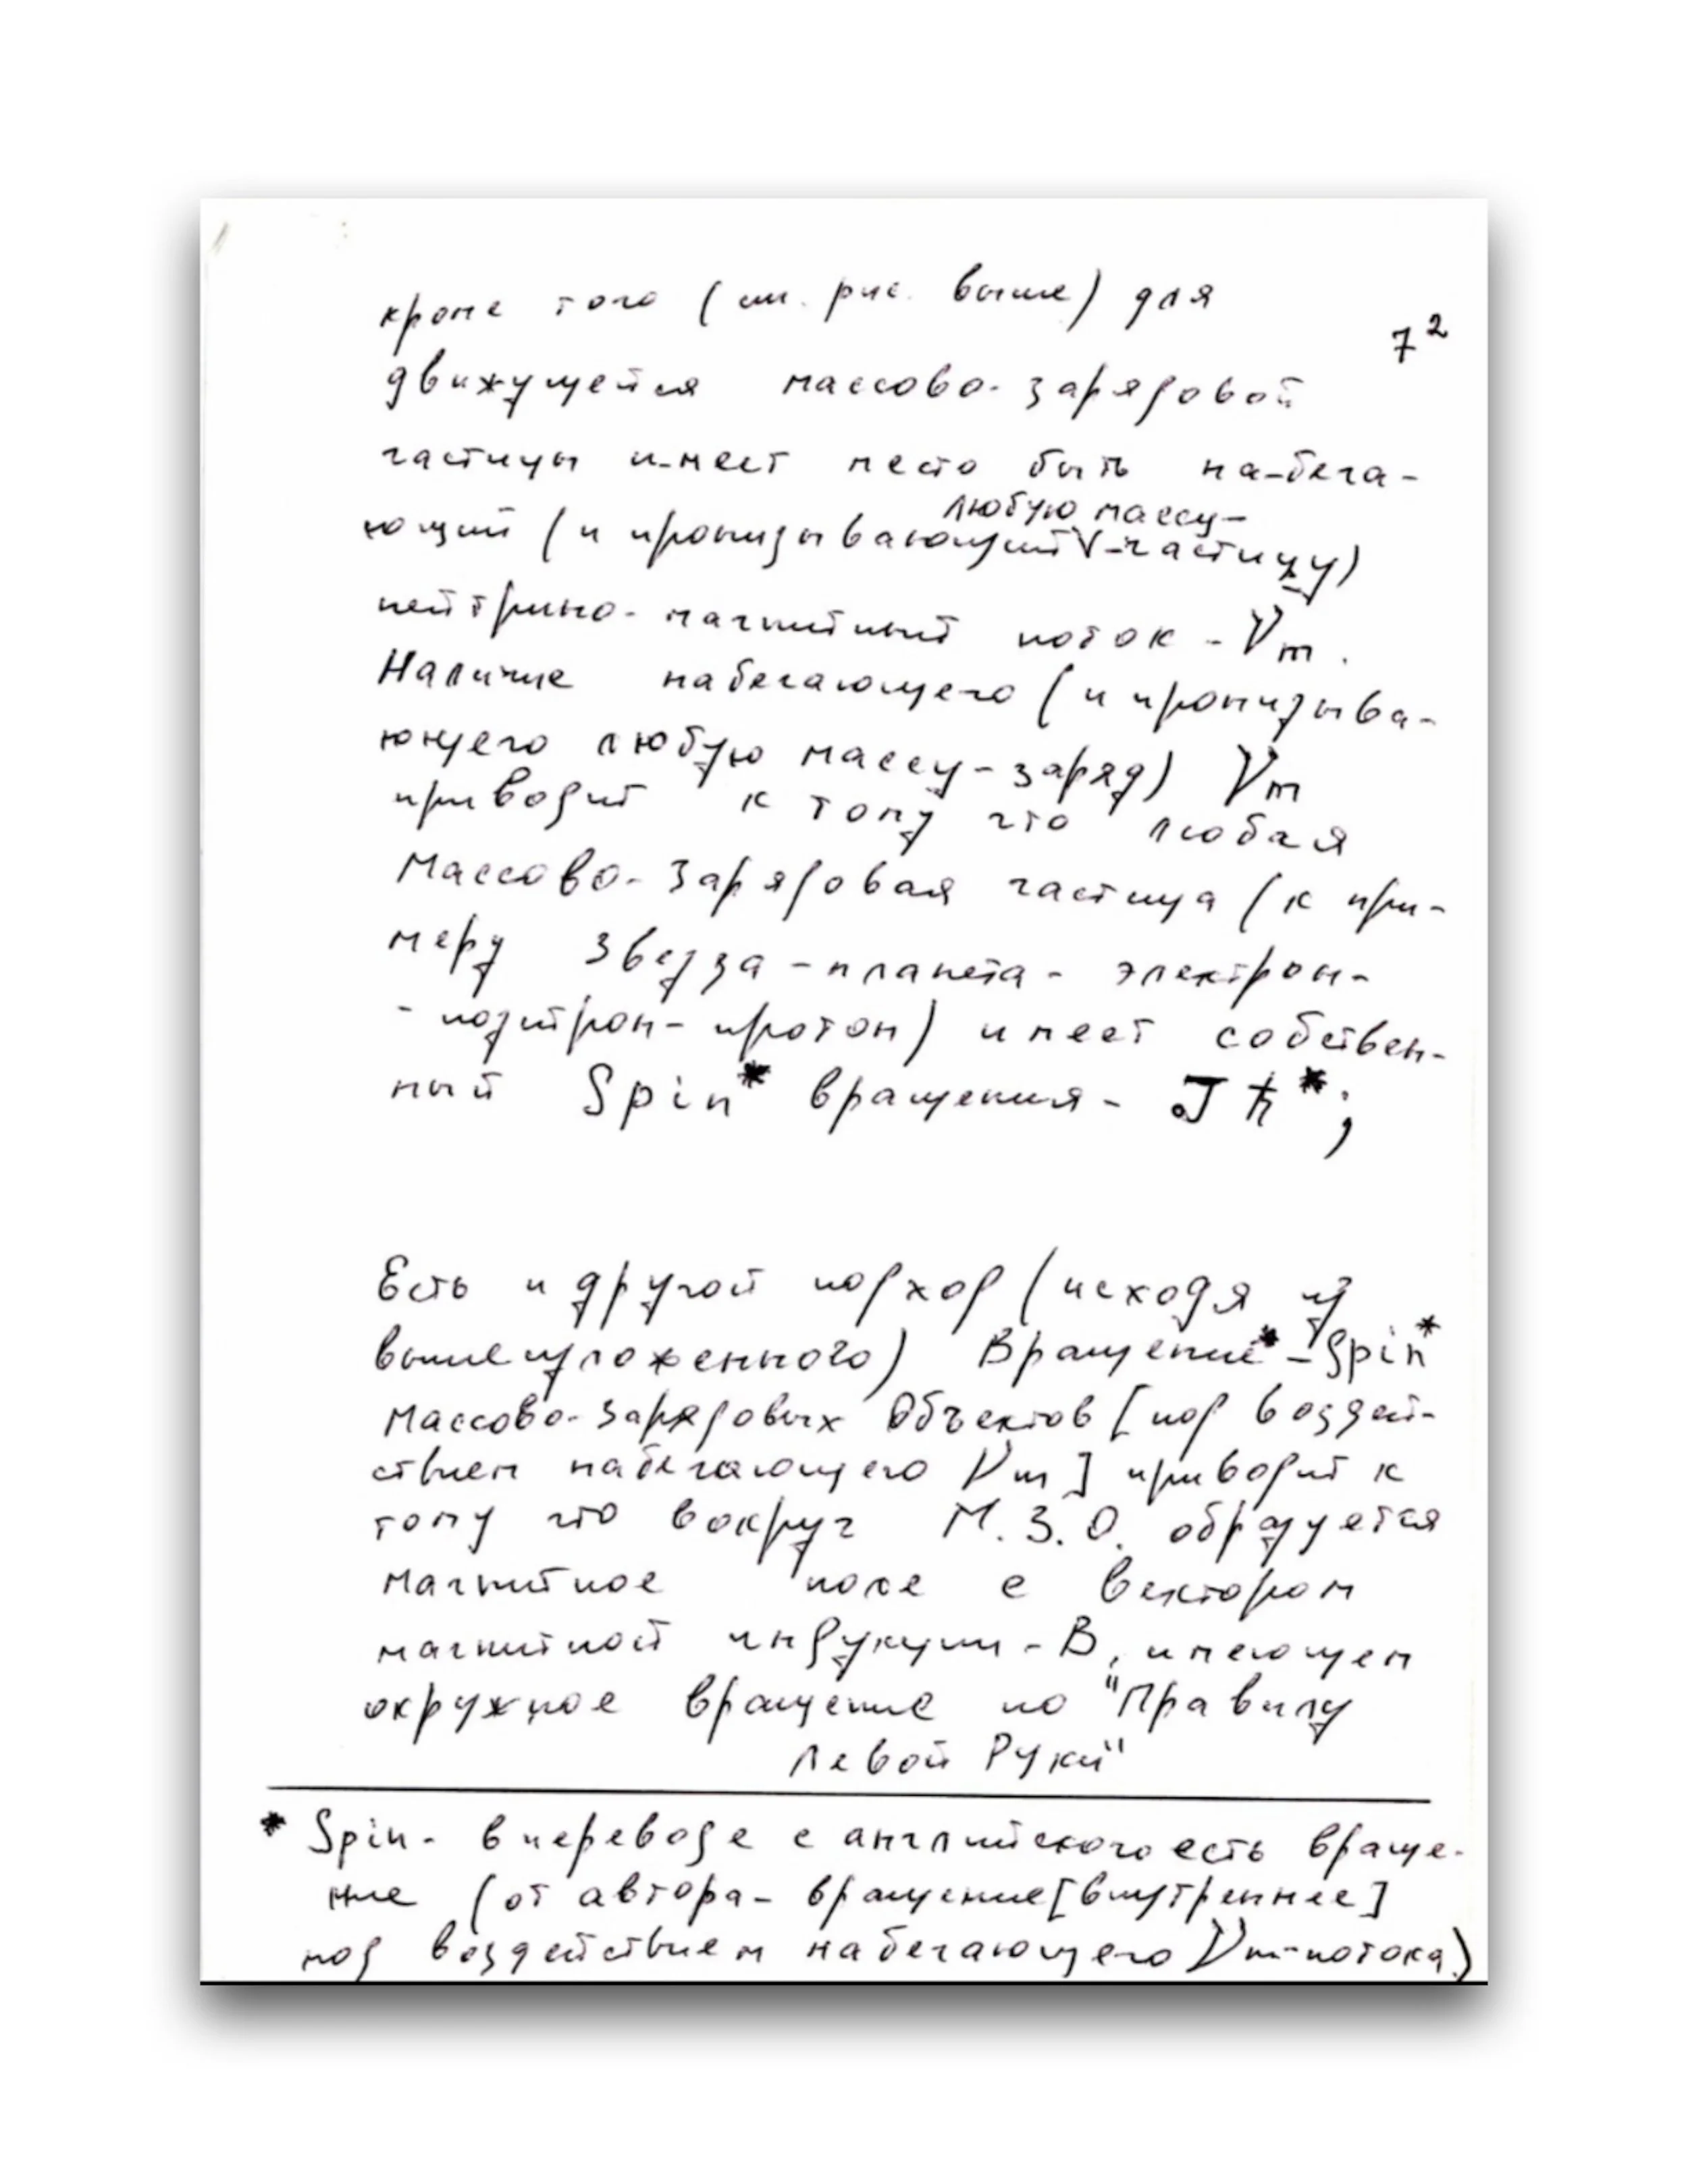 кроме того (см. рис. выше) для
7²
движущейся массово-зарядовой
частицы и-меет место быть на-бега-
любую массу-
ющий (и пронизывающий V-частицу)
нейтрино-магнитный поток - νm.
Наличие набегающего (и пронизыва-
ющего любую массу-заряд) νm
приводит к тому что любая
массово-зарядовая частица (к при-
меру звезда-планета-электрон-
-позитрон-протон) имеет собствен-
ный Spin* вращения - Jħ*;
Есть и другой подход (исходя из
вышеизложенного) Вращение*-Spin*
массово-зарядовых Объектов [под воздей-
ствием набегающего νm] приводит к
тому что вокруг М.З.О. образуется
магнитное поле с вектором
магнитной индукции - B, имеющем
окружное вращение по "Правилу
Левой Руки"
* Spin - в переводе с английского есть враще-
ние (от автора - вращение [внутреннее]
под воздействием набегающего νm-потока.)